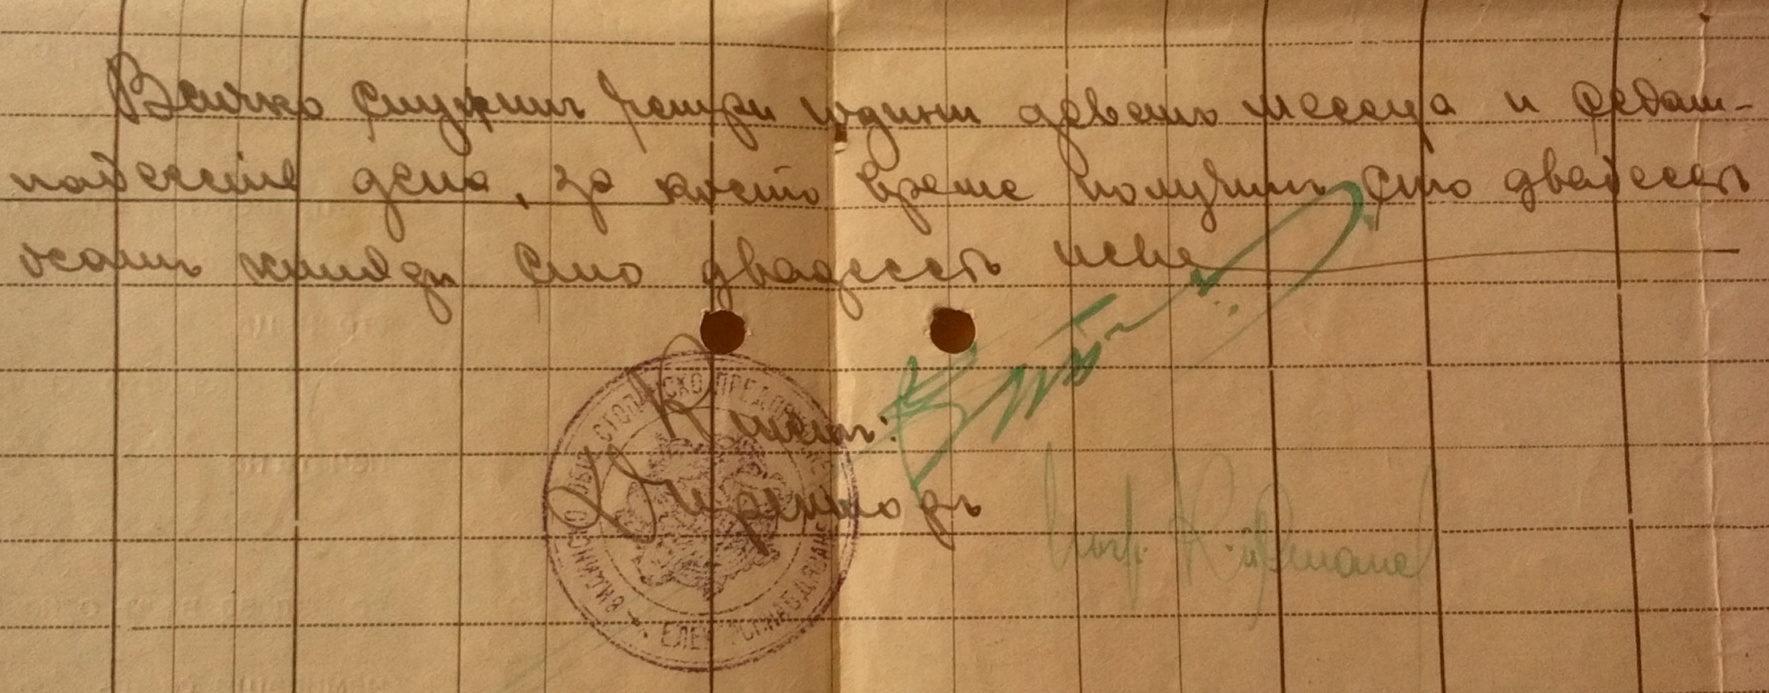 Всичко служилъ четири години деветъ месеца и седем-
надесеть дена, за което време получилъ сто двадесеть
осемь хиляди сто двадесеть лева
К-тель:
Директоръ инж.
СТОПАНСКО ПРЕДПРИЯТИЕ
ЕЛЕКТРОСНАБДЯВАНЕ